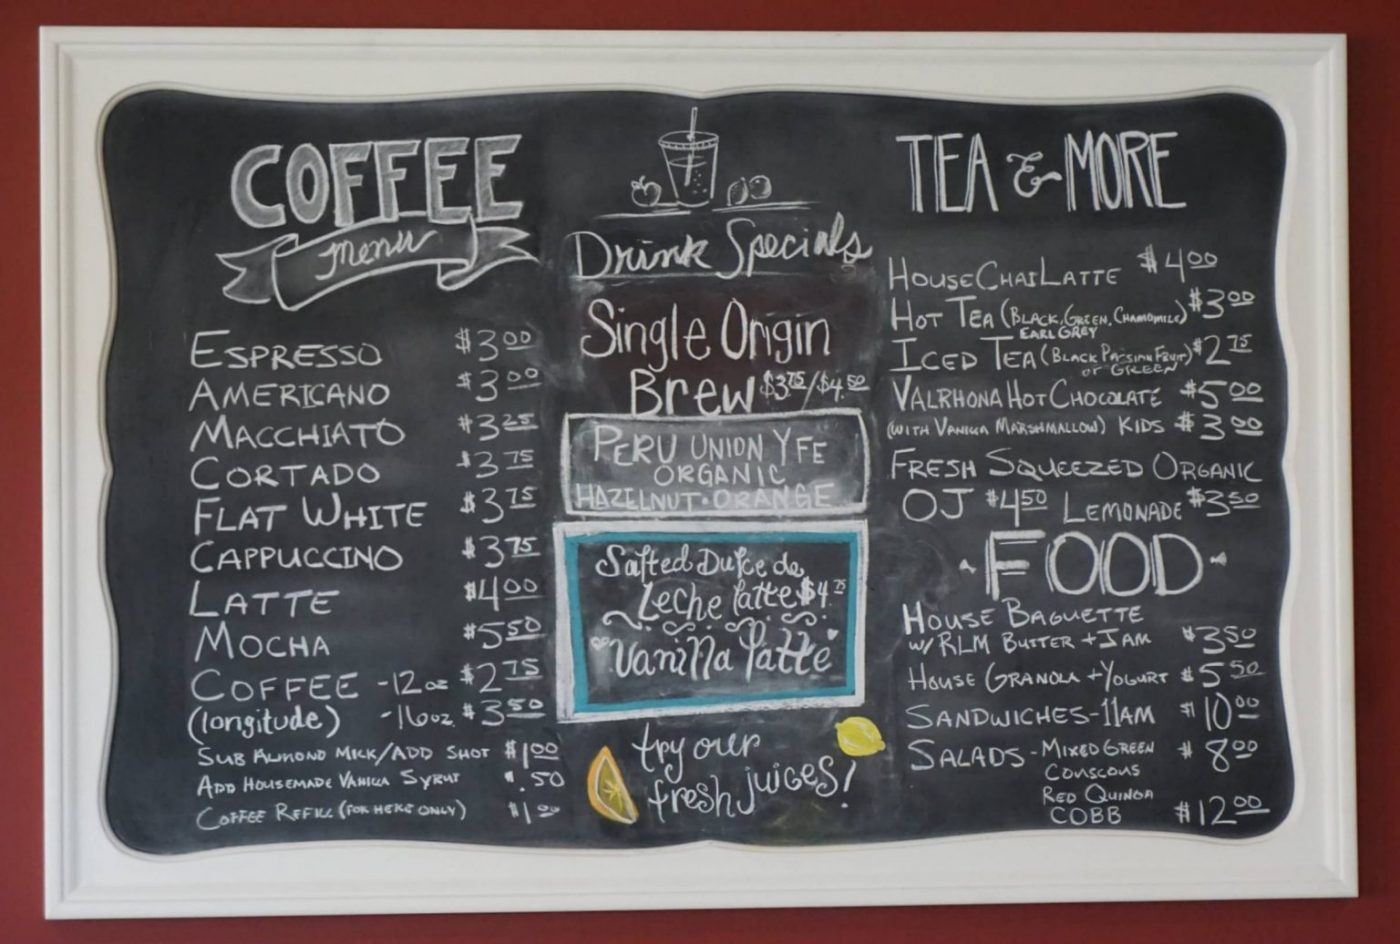 COFFEE
menu
ESPRESSO $3.00
AMERICANO $3.00
MACCHIATO $3.25
CORTADO $3.75
FLAT WHITE $3.75
CAPPUCCINO $3.75
LATTE $4.00
MOCHA $5.50
COFFEE -12oz $2.75
(longitude) -16oz. $3.50
SUB ALMOND MILK/ADD SHOT $1.00
ADD HOUSEMADE VANILLA SYRUP $.50
COFFEE REFILL (FOR HERE ONLY) $1.00
Drink Specials
Single Origin
Brew $3.75/$4.50
PERU UNION YFE
ORGANIC
HAZELNUT·ORANGE
Salted Dulce de
Leche latte $4.75
Vanilla latte
try our
fresh juices!
TEA & MORE
HOUSE CHAI LATTE $4.00
HOT TEA (BLACK, GREEN, CHAMOMILE) $3.00
EARL GREY
ICED TEA (BLACK PASSION FRUIT) $2.75
or GREEN
VALRHONA HOT CHOCOLATE $5.00
(WITH VANILLA MARSHMALLOW) KIDS $3.00
FRESH SQUEEZED ORGANIC
OJ $4.50 LEMONADE $3.50
FOOD
HOUSE BAGUETTE
W/ RLM BUTTER + JAM $3.50
HOUSE GRANOLA + YOGURT $5.50
SANDWICHES-11AM $10.00
SALADS - MIXED GREEN $8.00
COUSCOUS
RED QUINOA
COBB $12.00